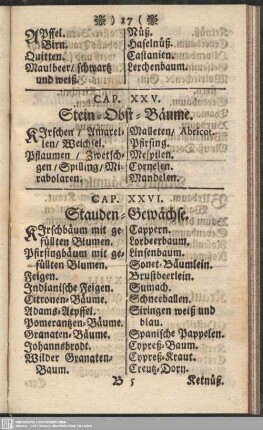 ) 17 (
Apffel.
Birn.
Quitten.
Maulbeer / schwartz
und weiß.
Nüß.
Haselnüß.
Castanien.
Lerchenbaum.
CAP. XXV.
Stein-Obst-Bäume.
Kirschen / Amarel-
len / Weichsel.
Pflaumen / Zwetsch-
gen / Spilling / Mi-
rabolaren.
Malleten / Abricot.
Pfirsing.
Mespilen.
Cornelen.
Mandelen.
CAP. XXVI.
Stauden-Gewächse.
Kirschbäum mit ge-
füllten Blumen.
Pfirsingbäum mit ge-
füllten Blumen.
Feigen.
Indianische Feigen.
Citronen-Bäume.
Adams-Aepffel.
Pomerantzen-Bäume.
Granaten-Bäume.
Johannsbrodt.
Wilder Granaten-
Baum.
Cappern.
Lorbeerbaum.
Linsenbaum.
Sonet-Bäumlein.
Brustbeerlein.
Sumach.
Schneeballen.
Siringen weiß und
blau.
Spanische Pappelen.
Cypreß-Baum.
Cypreß-Kraut.
Creutz-Dorn.
B 5
Ketnüß.